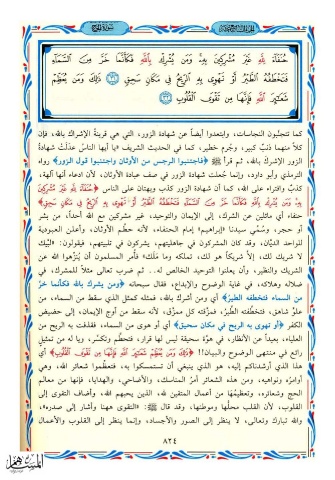 حُنَفَآءَ لِلَّهِ غَيْرَ مُشْرِكِينَ بِهِۦ وَمَن يُشْرِكْ بِٱللَّهِ فَكَأَنَّمَا خَرَّ مِنَ ٱلسَّمَآءِ
فَتَخْطَفُهُ ٱلطَّيْرُ أَوْ تَهْوِى بِهِ ٱلرِّيحُ فِى مَكَانٍ سَحِيقٍ ۝٣١ ذَٰلِكَ وَمَن يُعَظِّمْ
شَعَٰٓئِرَ ٱللَّهِ فَإِنَّهَا مِن تَقْوَى ٱلْقُلُوبِ ۝٣٢
كما تتجنبون النجاسات، وابتعدوا أيضاً عن شهادة الزور، التي هي قرينةُ الإشراك بالله، فإن
كلاً منهما ذنبٌ كبير، وجُرم خطير، كما في الحديث الشريف «يا أيها الناسُ عدلَت شهادةُ
الزور الإشركَ بالله، ثم قرأ ﷺ ﴿فاجتنبوا الرجس من الأوثان واجتنبوا قول الزور﴾ رواه
الترمذي وأبو داود، وإنما جُعلت شهادة الزور في صف عبادة الأوثان، لأن ادعاء أنها آلهة،
كذبٌ وافتراء على الله، كما أن شهادة الزور كذب وبهتان على الناس ﴿حُنَفَآءَ لِلَّهِ غَيْرَ مُشْرِكِينَ
بِهِۦ وَمَن يُشْرِكْ بِٱللَّهِ فَكَأَنَّمَا خَرَّ مِنَ ٱلسَّمَآءِ فَتَخْطَفُهُ ٱلطَّيْرُ أَوْ تَهْوِى بِهِ ٱلرِّيحُ فِى مَكَانٍ سَحِيقٍ﴾
حنفاء أي مائلين عن الشرك، إلى الإيمان والتوحيد، غير مشركين مع الله أحداً، من بشرٍ
أو حجر، وسُمِّي سيدنا «إبراهيم» إمام الحنفاء، لأنه حطَّم الأوثان، وأعلن العبودية
للواحد الديَّان، وقد كان المشركون في جاهليتهم، يشركون في تلبيتهم، فيقولون: لبَّيك
لا شريك لك، إلاَّ شريكاً هو لك، تملكه وما مَلَك» فأمر المسلمون أن يُنزِّهوا الله عن
الشريك والنظير، وأن يعلنوا التوحيد الخالص له.. ثم ضرب تعالى مثلاً للمشرك، في
ضلاله وهلاكه، في غاية الوضوح والإبداع، فقال سبحانه ﴿ومن يشرك بالله فكأنما خرَّ
من السماء فتخطفه الطير﴾ أي ومن أشرك بالله، فمثله كمثل الذي سقط من السماء، من
علوٍّ شاهق، فتخطَّفته الطيورُ، فمزَّقته كل ممزَّق، لأنه سقط من أوج الإيمان، إلى حضيض
الكفر ﴿أو تهوي به الريح في مكان سحيق﴾ أي أو هوى من السماء، فقذفت به الريح من
العلياء، بعيداً عن الأنظار، في هوَّة سحيقة ليس لها قرار، فتحطَّم وتكسَّر، ويا له من تمثيلٍ
رائع في منتهى الوضوح والبيان!! ﴿ذَٰلِكَ وَمَن يُعَظِّمْ شَعَٰٓئِرَ ٱللَّهِ فَإِنَّهَا مِن تَقْوَى ٱلْقُلُوبِ﴾ أي
هذا الذي أرشدناكم إليه، هو الذي ينبغي أن تستمسكوا به، فتعظِّموا شعائر الله، وهي
أوامرُه ونواهيه، ومن هذه الشعائر أمرُ المناسك، والأضاحي، والهدايا، فإنها من معالم
الحج وشعائره، وتعظيمُها من أعمال المتقين لله، الذين يحبهم الله، وأضاف التقوى إلى
القلوب، لأن القلب محلُّها وموطنُها، وقد قال ﷺ: «التقوى ههنا وأشار إلى صدره»،
والله تبارك وتعالى، لا ينظر إلى الصور والأجساد، وإنما ينظر إلى القلوب والأعمال
٨٢٤